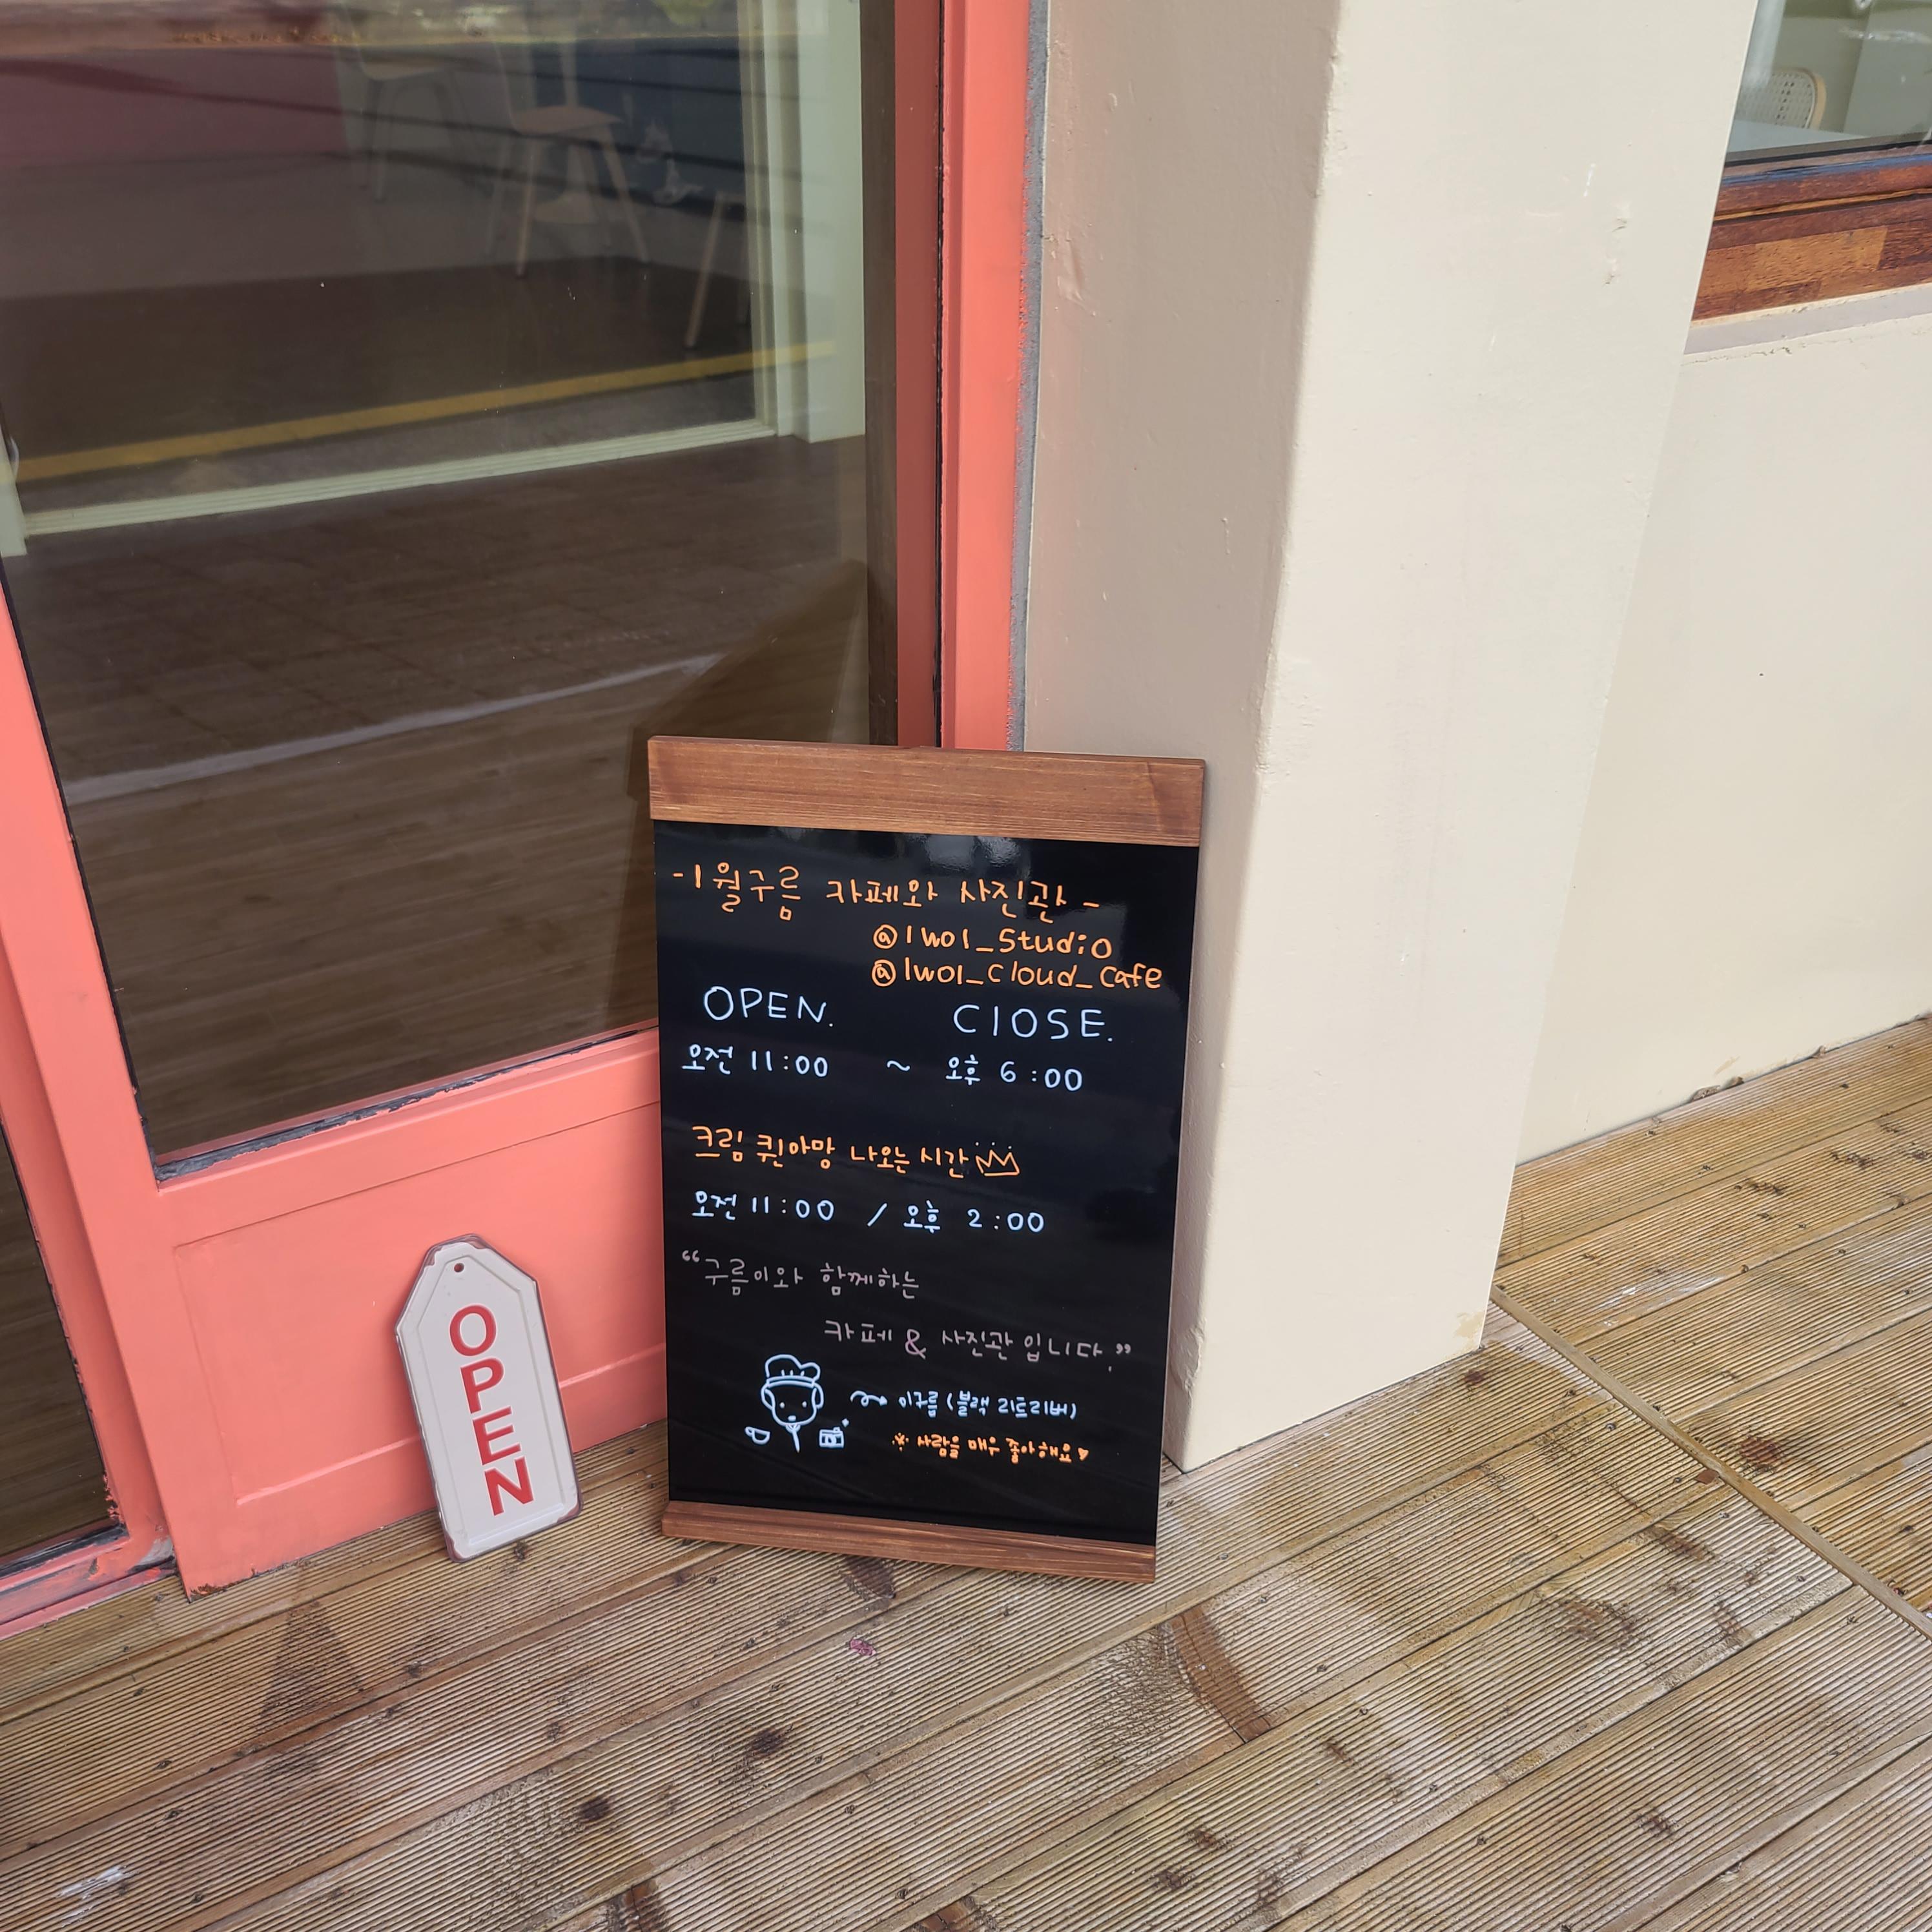 -1월구름 카페와 사진관-
@1wol_Studio
@1wol_cloud_cafe
OPEN. ClOSE.
오전 11:00 ~ 오후 6:00
크림 퀸아망 나오는 시간
오전 11:00 / 오후 2:00
“구름이와 함께하는
카페 & 사진관 입니다.”
이구름 (블랙 리트리버)
※ 사람을 매우 좋아해요♥
OPEN